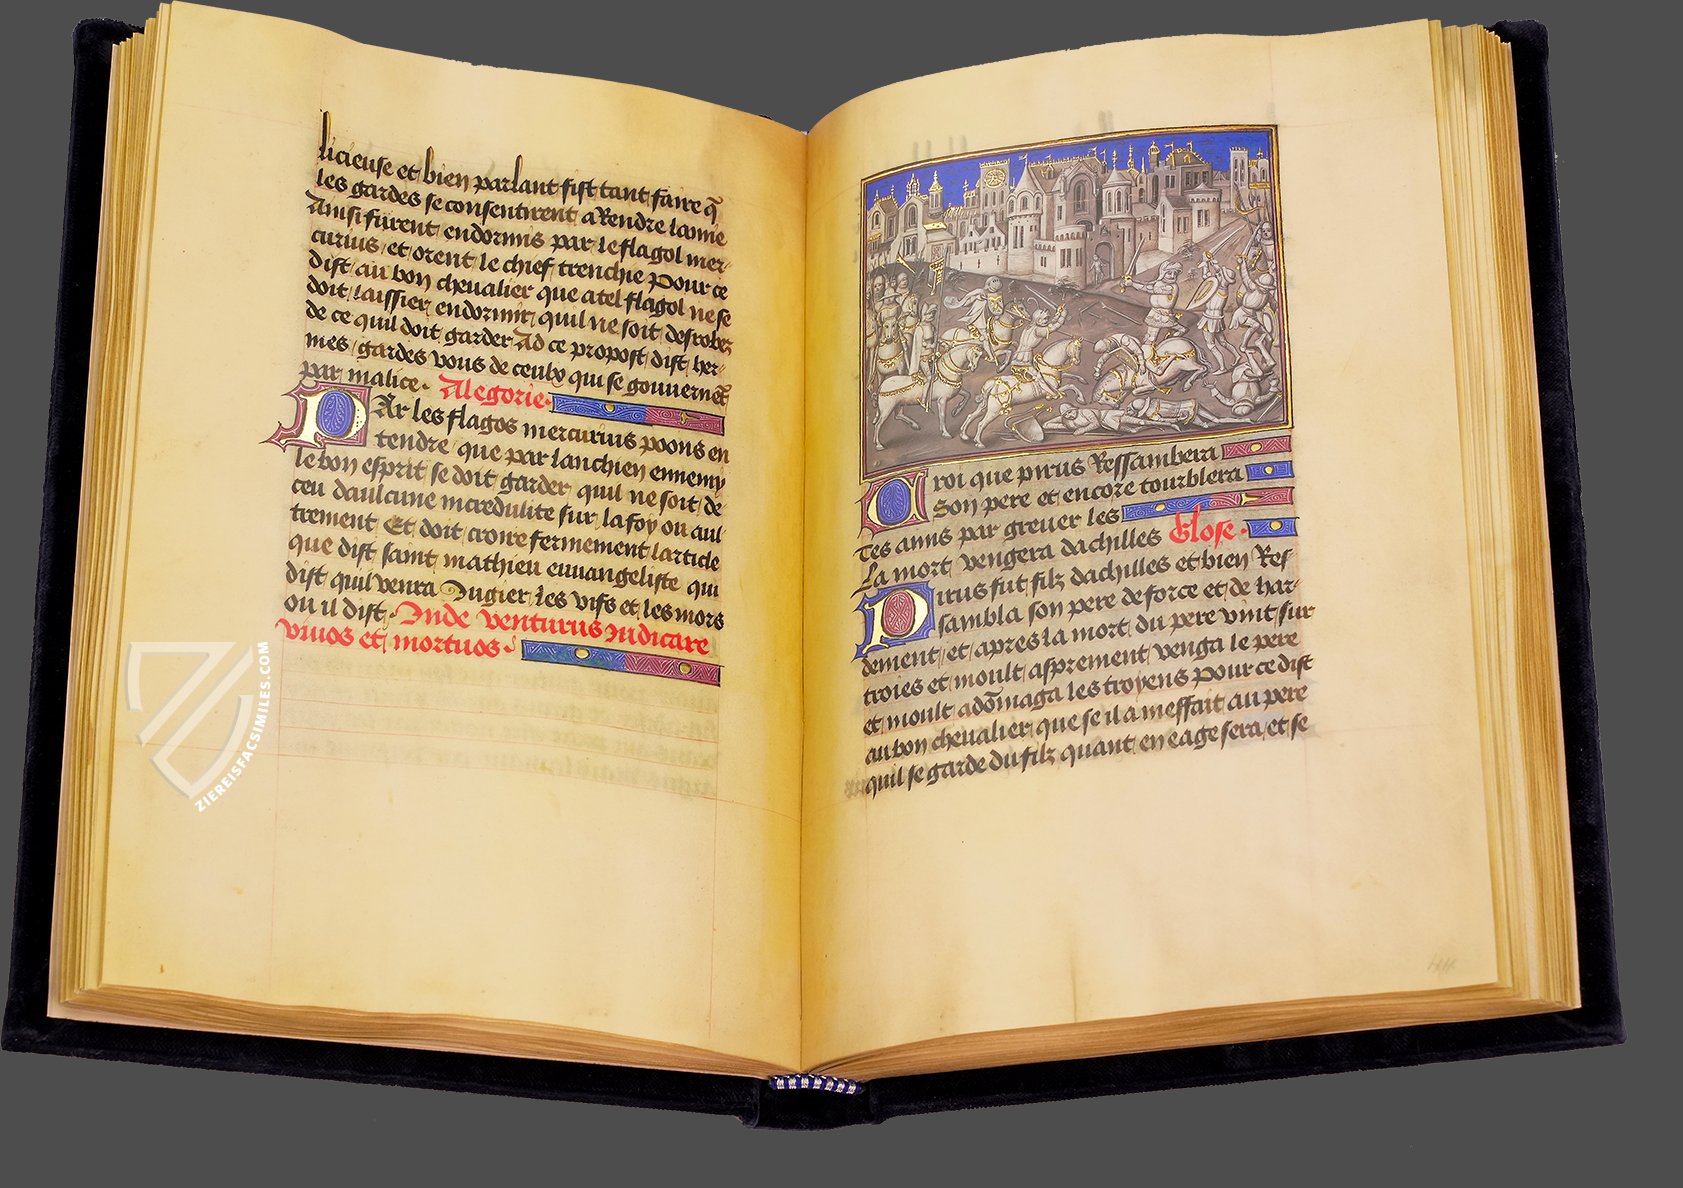 licieuse et bien parlant fist tant faire q̄
les gardes se consentirent a Rendre lame
Ainsi furent endormis par le flagol mer-
curius et orent le chief trenchie Pour ce
dist au bon chevalier que a tel flagol ne se
doit laissier endormir quil ne soit desrobez
de ce quil doit garder Ad ce propost dist her-
mes gardes vous de ceulx qui se gouvernēt
par malice. Alegorie.
Par les flagos mercurius poons en
tendre que par lanchien ennemy
le bon esprit se doit garder quil ne soit de
ceu daulcune incredulite sur la foy ou aul
trement Et doit croire fermement larticle
que dist saint mathieu euuangeliste qui
dist quil venra Jugier les vifs et les mors
ou il dist. Inde venturus iudicare
viuos et mortuos.
Croi que pirus Ressambera
Son pere et encore tourblera
Tes anis par greuer les
La mort vengera dachilles Glose.
Pirus fut filz dachilles et bien Res
sambla son pere de force et de har-
dement et apres la mort du pere vint sur
troies et moult asprement venga le pere
et moult adōmaga les troyens Pour ce dist
au bon chevalier que se il a meffait au pere
quil se garde du filz quant en eage sera et se
ZIEREISFACSIMILES.COM